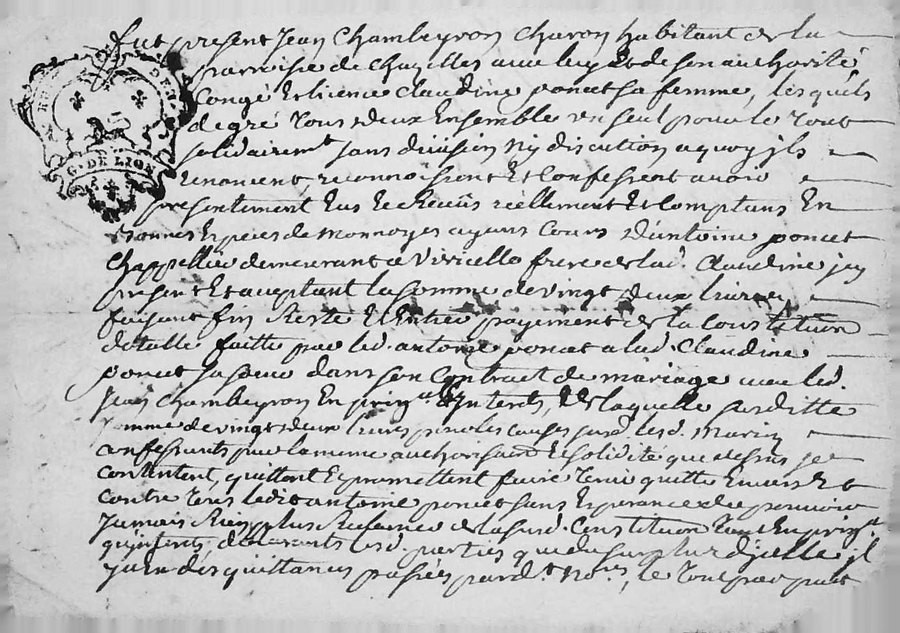 fut present Jean Chambeyron charon habitant de la
parroisse de Chazelles avec leq. et de son authorité
Congé et licence Claudine poncet sa femme, lesquels
de gré tous deux Ensemble un seul pour le tout
solidairemt sans division ny discution a quoy ils
renoncent reconnoissent Et Confessent avoir
presentement Eus Et Reçeüs réellement Et Comptans En
bonnes Especes de monnoyes ayans Cours d'antoine poncet
Chappellier demeurant a Viricelle frere de lad. Claudine jcy
present Et acceptant la somme de vingt deux livres
faisant fin Reste Et Entier payement de la Constitution
dotalle faitte par led. antoine poncet a lad. Claudine
poncet sa soeur dans son Contract de mariage avec led.
Jean Chambeyron En prin.al Et Interets, de laquelle susditte
somme de vingt deux livres pour les causes susd. lesd. Mariez
confessants par la meme authorisation Et solidité que dessus se
contentent, quittent Et promettent faire tenir quitte Envers Et
contre tous ledit antoine poncet sans Esperance de pouvoir
Jamais Rien plus de la susd. Constitution tant En prin.al
qu'interets, declarants lesd. parties que du surplus d'jcelle jl
y a Eu des quittances passées pard.t No.res, le tout par